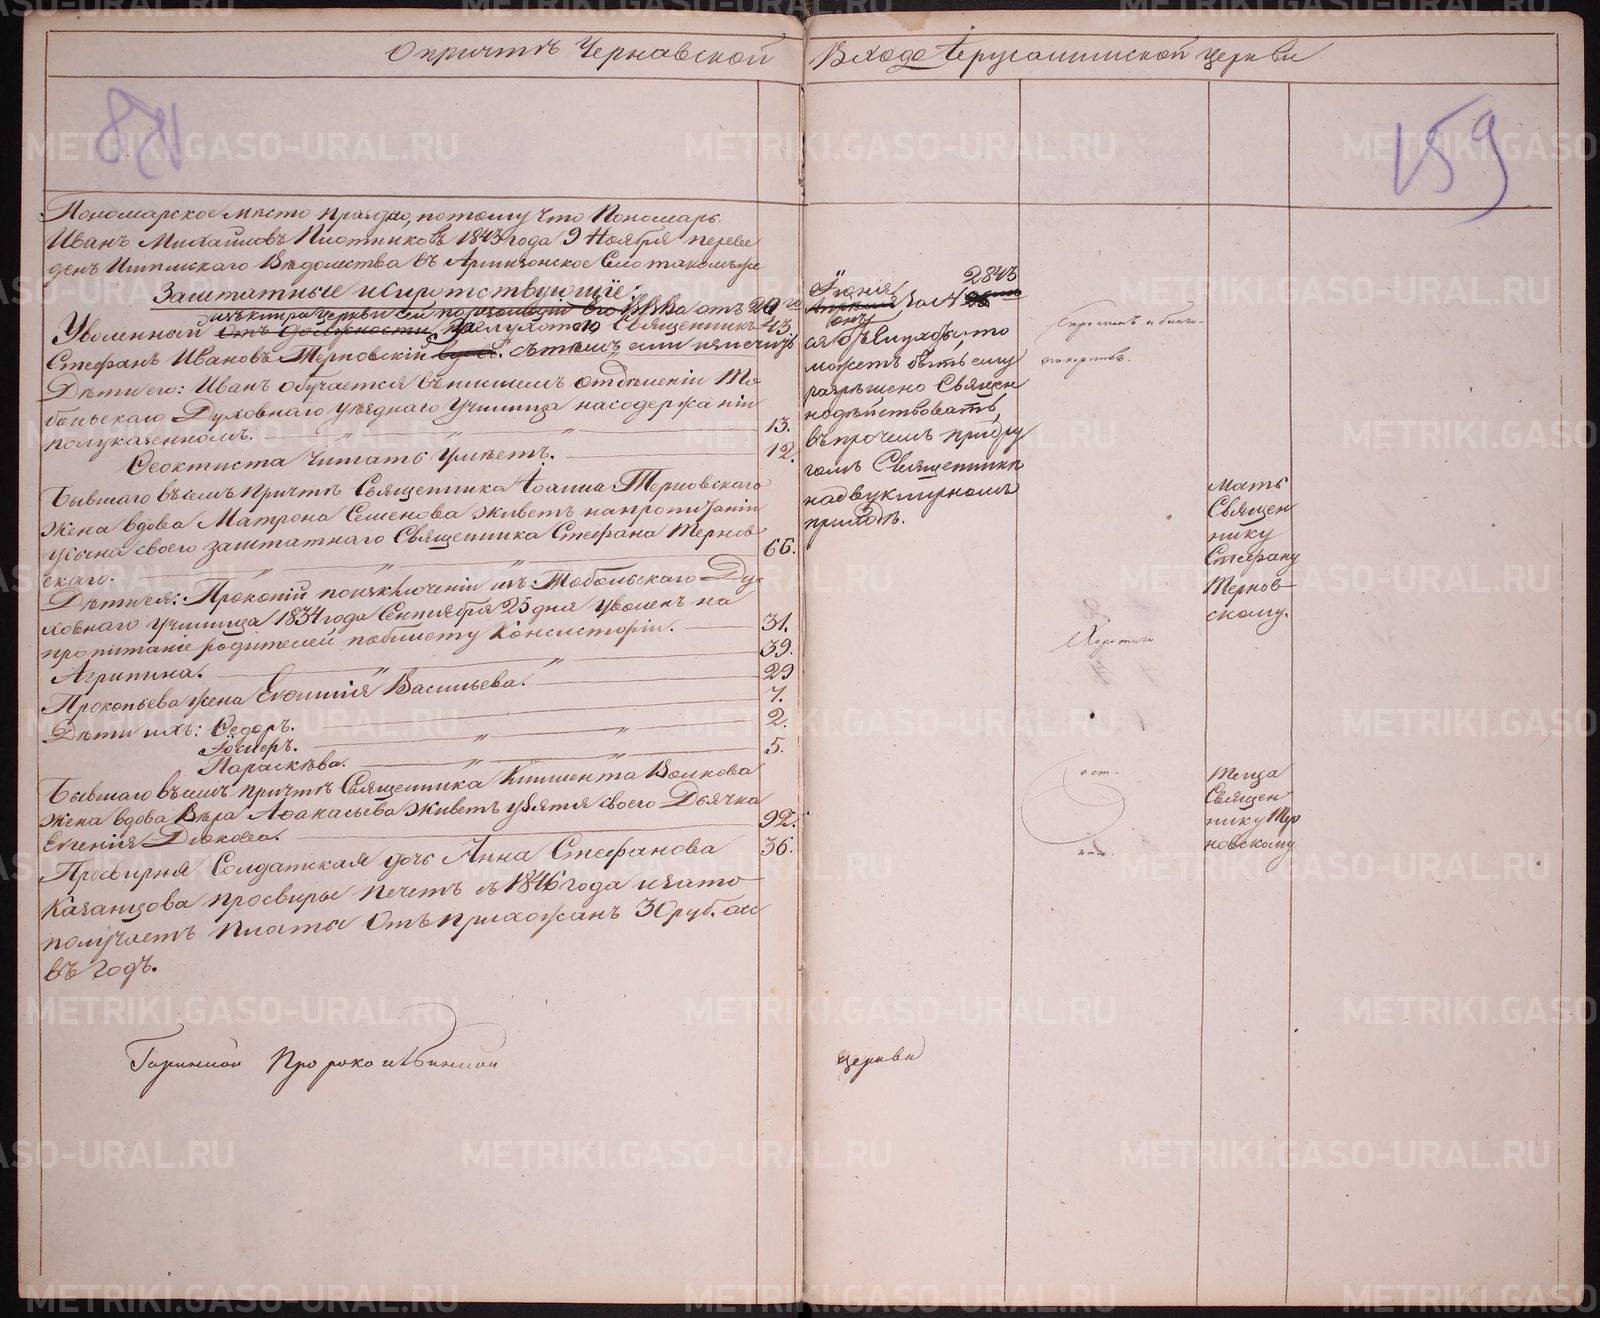 О причтѣ Чернавской Входо Іерусалимской церкви
158
159
Пономарское мѣсто праздно, потому что Пономарь
Иванъ Михайловъ Плотниковъ 1843 года 9 Ноября переве
денъ Ишимскаго Вѣдомства въ Армизонское Село такомъже
Заштатные и Сиротствующіе:
церкви сей по резолюціи Его ВПВа отъ 20го
Уволенный отъ должности, за глухотою Священникъ 43
Стефанъ Ивановъ Терновскій вдовъ. съ тѣмъ если излечит
Дѣти его: Иванъ обучается въ низшемъ отдѣленіи То
больскаго Духовнаго уѣзднаго Училища на содержаніи
полуказенномъ. 13.
Ѳеоктиста читать умѣетъ. 12.
Бывшаго въ семъ причтѣ Священника Іоанна Терновскаго
жена вдова Матрона Семенова живетъ на пропитаніи
у сына своего заштатнаго Священника Стефана Тернов
скаго. 66.
Дѣти ея: Прокопій по изключеніи изъ Тобольскаго Ду
ховнаго училища 1834 года Сентября 25 дня уволенъ на
пропитаніе родителей по билету Консисторіи. 31.
Агрипина. 39.
Прокопьева жена Евфимія Васильева. 29
Дѣти ихъ: Ѳедоръ. 7.
2.
Параскѣва. 5.
Бывшаго въ семъ причтѣ Священника Климента Волкова
жена вдова Вѣра Аѳанасьева живетъ у зятя своего Дьячка
Евгенія Дюкова. 92.
Просвирня Солдатская дочь Анна Стефанова 36.
Казанцова просвиры печетъ съ 1846 года и за то
получаетъ платы отъ прихожанъ 30 руб. ас
въ годъ.
Іюня 1843
ся отъ глухоты, то
можетъ быть ему
разрѣшено Священ
нодѣйствовать,
въ прочемъ при дру
гомъ Священникѣ
на двуклирномъ
приходѣ.
Скроменъ и благо-
Хорошаго
Мать
Священ
нику
Стефану
Тернов
скому.
Теща
Священ
нику Тер
новскому
Гаринской Пророкоильинской церкви